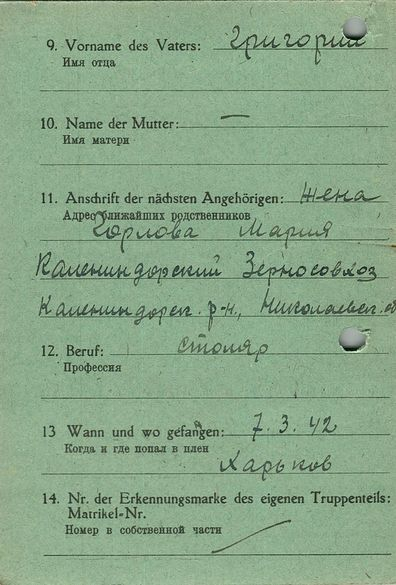 9. Vorname des Vaters: Григорий
Имя отца
10. Name der Mutter: —
Имя матери
11. Anschrift der nächsten Angehörigen: жена
Адрес ближайших родственников
Горлова Мария
Калениндорский Зерносовхоз
Калениндорск. р-н, Николаевск. об
12. Beruf: столяр
Профессия
13 Wann und wo gefangen: 7. 3. 42
Когда и где попал в плен
Харьков
14. Nr. der Erkennungsmarke des eigenen Truppenteils:
Matrikel-Nr.
Номер в собственной части